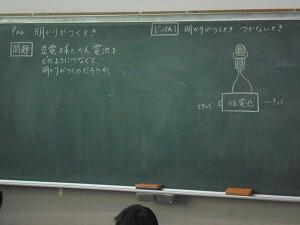 P.64 明かりがつくとき
問題 豆電球とかん電池を
どのようにつなぐと、
明かりがつくのだろうか。
じっけん1 明かりがつくとき つかないとき
+きょく
かん電池
ーきょく